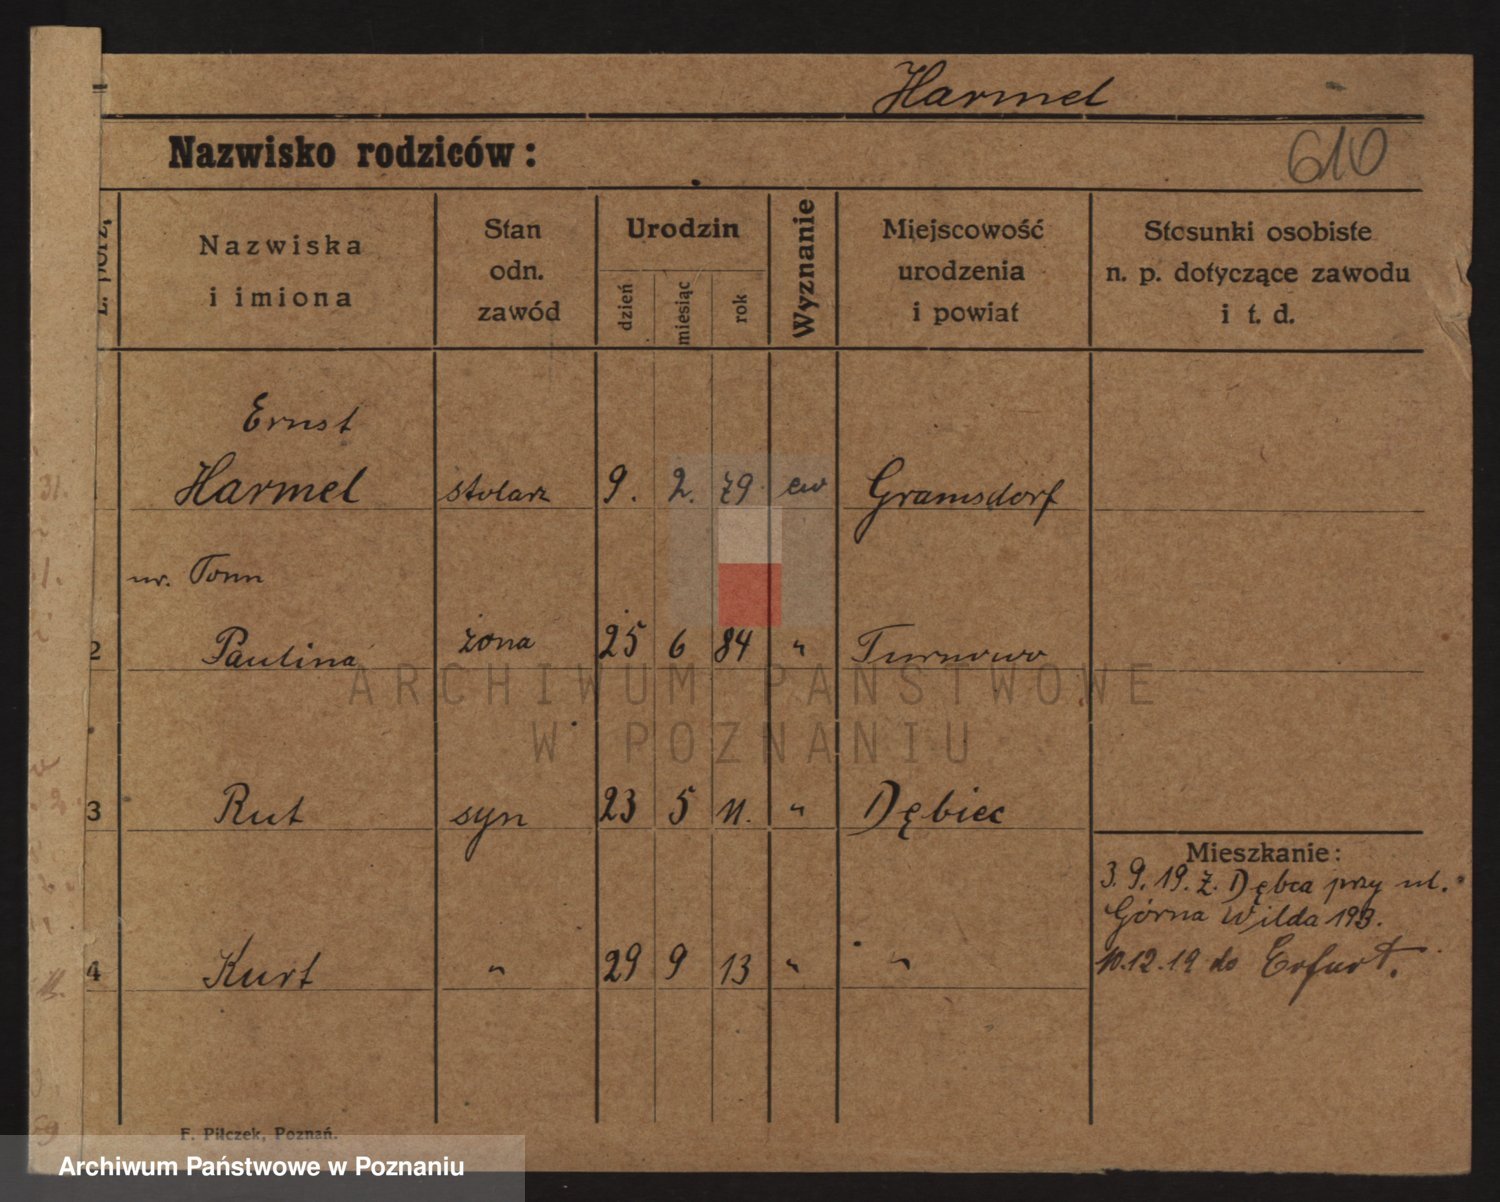 Harmel
610
Nazwisko rodziców:
L. porz.
Nazwiska
i imiona
Stan
odn.
zawód
Urodzin
dzień
miesiąc
rok
Wyznanie
Miejscowość
urodzenia
i powiat
Stosunki osobiste
n. p. dotyczące zawodu
i t. d.
Ernst
Harmel stolarz 9. 2. 79. ew Gramsdorf
ur. Tonn
2 Paulina żona 25 6 84 " Turnowo
3 Rut syn 23 5 11. " Dębiec
Mieszkanie:
3.9.19. z. Dębca przy ul.
Górna Wilda 193.
4 Kurt " 29 9 13 " "
10.12.19 do Erfurt.
F. Pilczek, Poznań.
ARCHIWUM PAŃSTWOWE
W POZNANIU
Archiwum Państwowe w Poznaniu